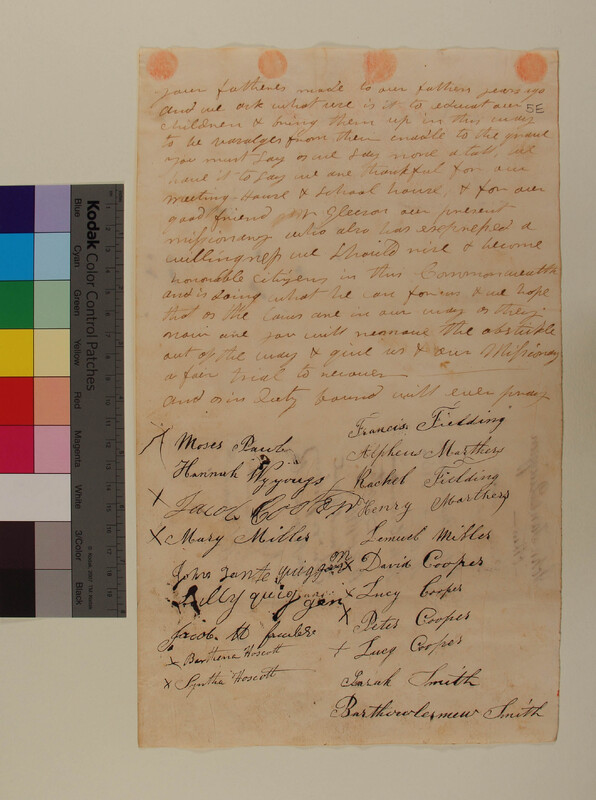 your fatheres made to our fathers years ago
and we ask what use is it to educat our
children & bring them up in this way
to be vasalges from their cradle to the grave
you must say or we say none atall, we
have it to say we are thankful for our
meeting-House & School house, & for our
good friend Mr Gleason our present
missionary who also has expressed a
willingness we should rise & become
honorable citizens in this Commonwealth
and is doing what he can for us & we hope
that as the Laws are in our way as they
now are you will remove the obstickle
out of the way & give us & our Missionary
a fair trial to recover
and as in Duty bound will ever pray
5E
Moses Paul
Hannah Wyyougs
Jacob Cooten
Mary Miller
John
quiggon
Jacob M fowler
X Barthena Hoscott
X Synthia Hoscott
Francis Fielding
Alpheus Marthers
Rachel Fielding
Henry Marthers
Lemuel Miller
X David Cooper
X Lucy Cooper
X Peter Cooper
X Lucy Cooper
Sarah Smith
Barthowlermew Smith
Kodak Color Control Patches
Blue
Cyan
Green
Yellow
Red
Magenta
White
3/Color
Black